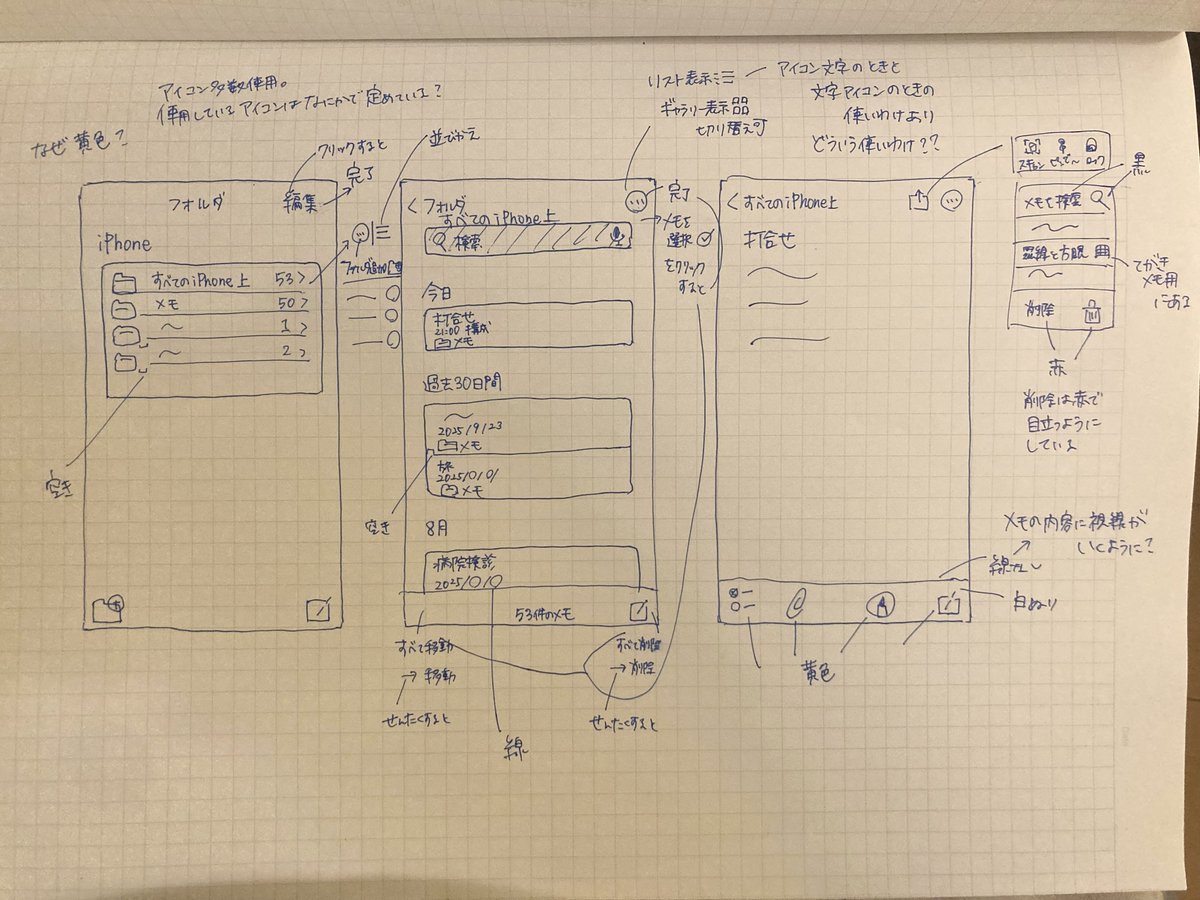 アイコン多数使用。
使用しているアイコンはなにかで定めている?
なぜ黄色?
クリックすると
完了
並びかえ
フォルダ
編集
iPhone
すべてのiPhone上 53>
メモ 50>
〜 1>
〜 2>
空き
リスト表示
ギャラリー表示
切り替え可
アイコン文字のときと
文字アイコンのときの
使いわけより
どういう使いわけ??
<フォルダ
すべてのiPhone上
検索
今日
打合せ
21:00 構成
メモ
過去30日間
〜
2025/9/23
メモ
旅
メモ
空き
8月
病院検診
53件のメモ
すべて移動
→移動
せんたくすると
すべて削除
→削除
せんたくすると
線
完了
→メモを
選択
をクリック
すると
<すべてのiPhone上
打合せ
スキャン ピンどめ ロック
黒
メモを検索
〜
罫線と方眼
〜
てがき
メモ用
にある
削除
赤
削除は赤で
目立つように
している
メモの内容に視線が
いくように?
線なし
白ぬり
黄色